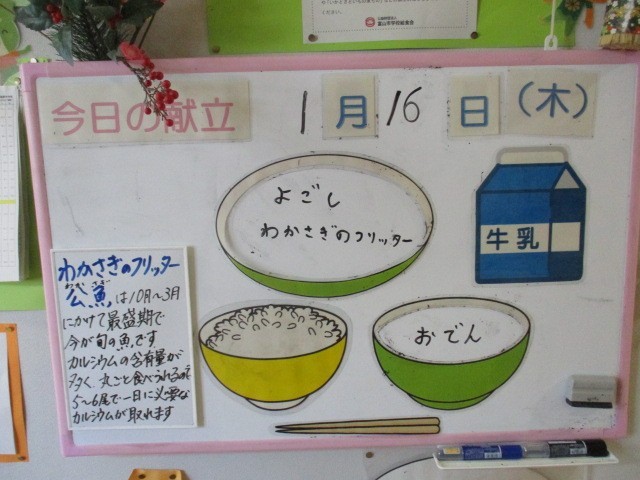 富山市学校給食会
今日の献立
1月16日(木)
よごし
わかさぎのフリッター
牛乳
おでん
わかさぎのフリッター
公魚は10月～3月
にかけて最盛期で
今が旬の魚です
カルシウムの含有量が
多く、丸ごと食べられるので
5～6尾で一日に必要な
カルシウムが取れます